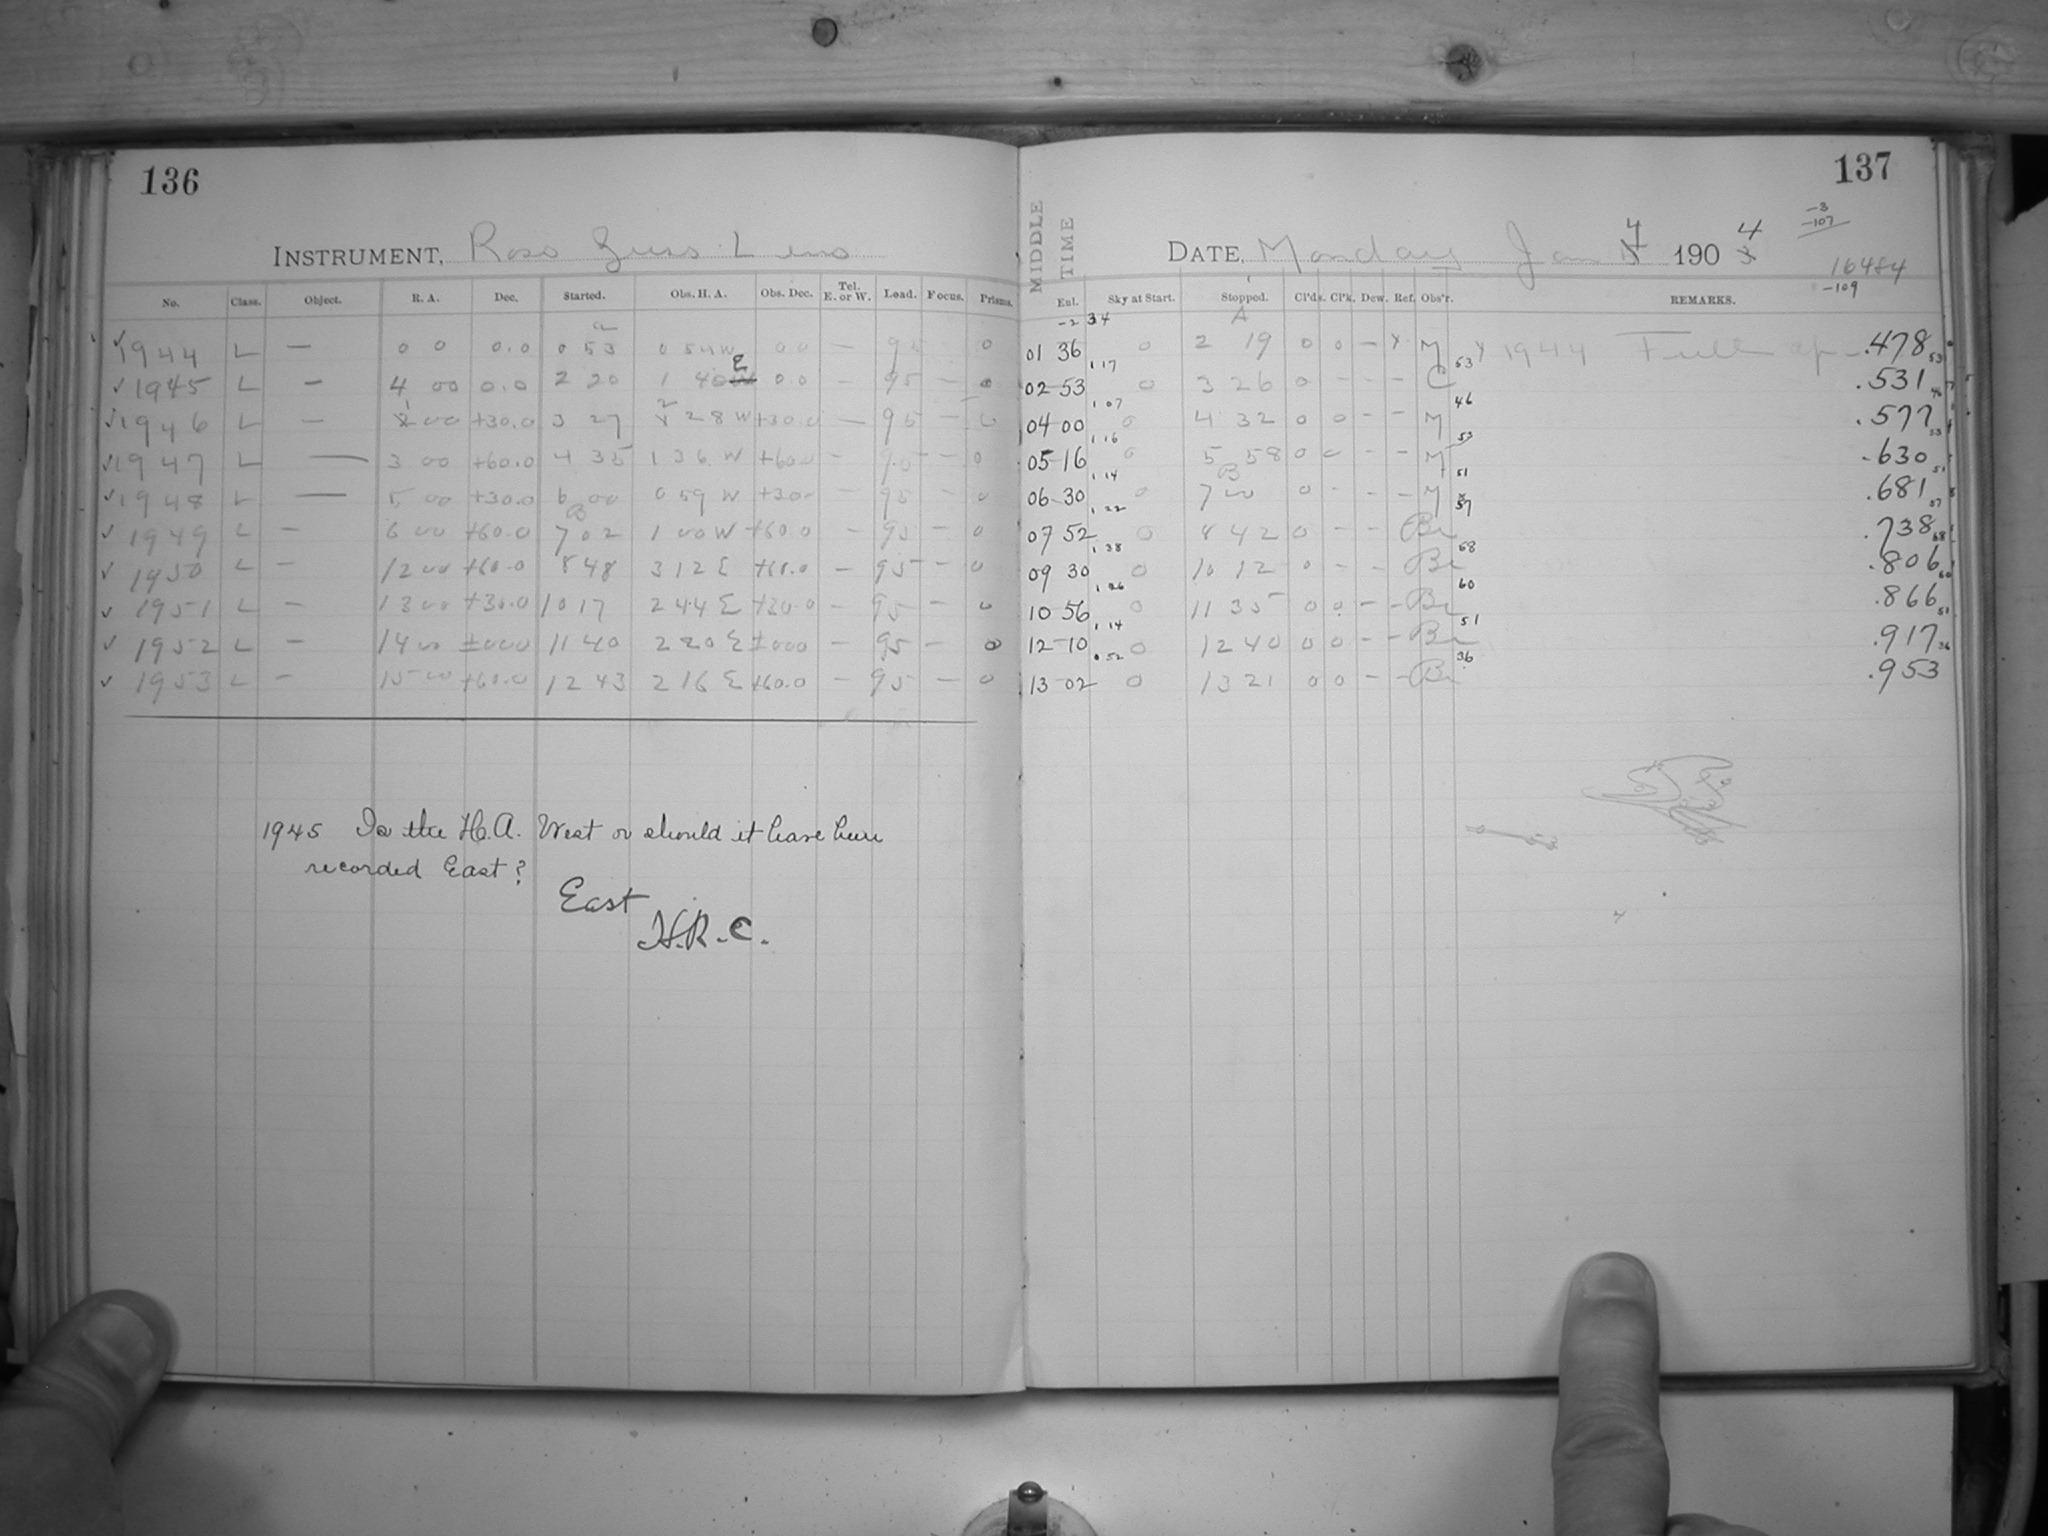 136
137
INSTRUMENT, Ross Zeiss Lens
MIDDLE TIME
DATE, Monday Jan 4 1904
-3
-107
16484
-109
No. Class. Object. R. A. Dec. Started. Obs. H. A. Obs. Dec. Tel. E. or W. Load. Focus. Prisms. Ext. Sky at Start. Stopped. Cl'ds. Cl'k. Dew. Ref. Obs'r. REMARKS.
-2 34 A
✓ 1944 L — 0 0 0.0 0 53 0 54 W 0 0 — 95 — 0 01 36 0 2 19 0 0 — x M x 1944 Full .478
1 17 53 53
✓ 1945 L — 4 00 0.0 2 20 1 40 E 0.0 — 95 — 0 02 53 0 3 26 0 - - - C .531
1 07 46 46
✓ 1946 L — 1 00 +30.0 3 27 2 28 W +30.0 — 95 — 0 04 00 0 4 32 0 0 - - M .577
1 16 53 53
✓ 1947 L — 3 00 +60.0 4 35 1 36 W +60.0 — 95 — 0 05 16 0 5 58 0 0 - - M .630
1 14 B 51 51
✓ 1948 L — 5 00 +30.0 6 00 0 59 W +30.0 — 95 — 0 06 30 0 7 00 0 - - - M .681
B 1 22 57 57
✓ 1949 L — 6 00 +60.0 7 02 1 00 W +60.0 — 95 — 0 07 52 0 8 42 0 - - Br .738
1 38 68 68
✓ 1950 L — 12 00 +60.0 8 48 3 12 E +60.0 — 95 — 0 09 30 0 10 12 0 - - Br .806
1 26 60 60
✓ 1951 L — 13 00 +30.0 10 17 2 44 E +30.0 — 95 — 0 10 56 0 11 35 0 0 - - Br .866
1 14 51 51
✓ 1952 L — 14 00 ±000 11 40 2 20 E ±000 — 95 — 0 12-10 0 12 40 0 0 - - Br .917
0 52 36 36
✓ 1953 L — 15 00 +60.0 12 43 2 16 E +60.0 — 95 — 0 13-02 0 13 21 0 0 - - Br .953
1945 Is the H.A. West or should it have been
recorded East?
East
H.R.C.